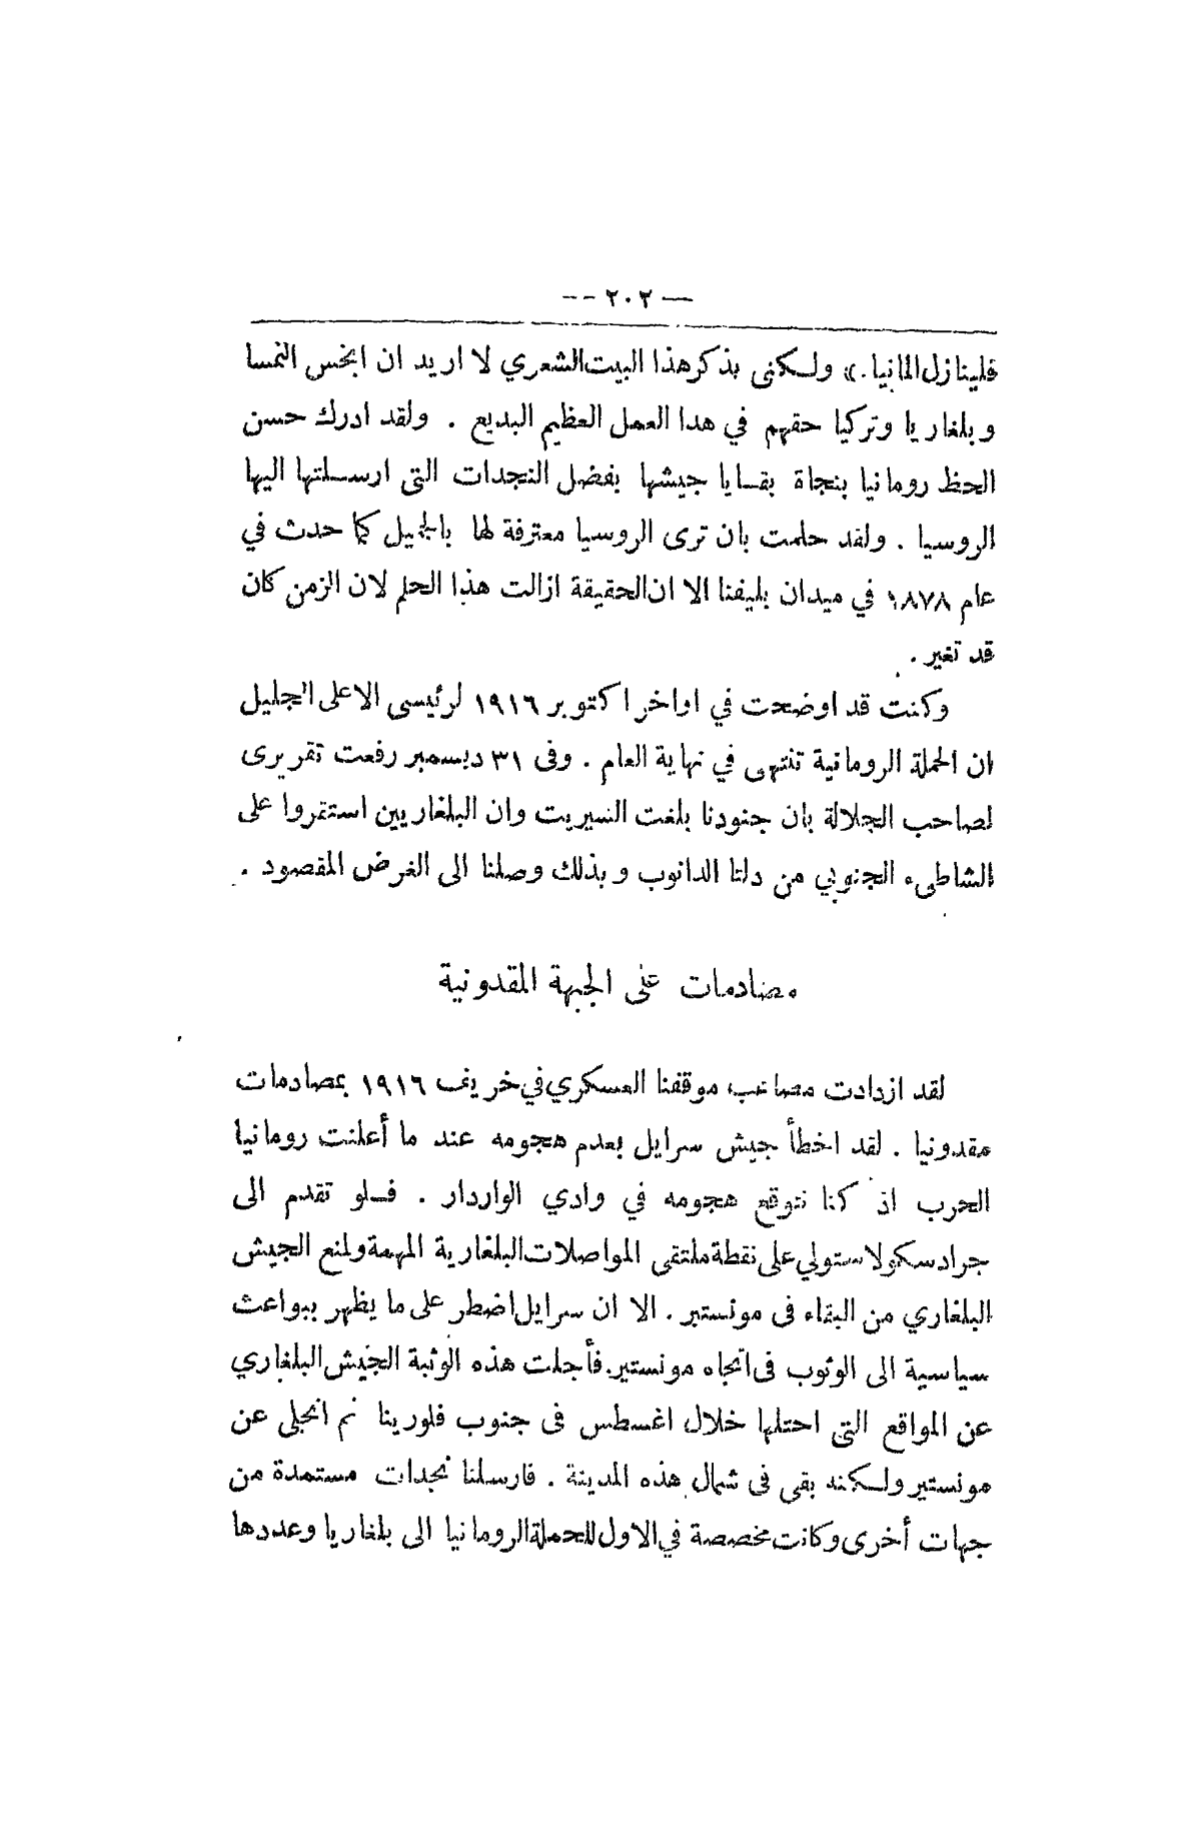 — ٢٠٢ --
فلينازل المانيا.» ولكنى بذكر هذا البيت الشعري لا اريد ان ابخس النمسا
وبلغاريا وتركيا حقهم في هدا العمل العظيم البديع . ولقد ادرك حسن
الحظ رومانيا بنجاة بقايا جيشها بفضل النجدات التى ارسلتها اليها
الروسيا . ولقد حلمت بان ترى الروسيا معترفة لها بالجميل كما حدث في
عام ١٨٧٨ في ميدان بليفنا الا ان الحقيقة ازالت هذا الحلم لان الزمن كان
قد تغير .
وكنت قد اوضحت في اواخر اكتوبر ١٩١٦ لرئيسى الاعلى الجليل
ان الحملة الرومانية تنتهى في نهاية العام . وفى ٣١ ديسمبر رفعت تقريرى
لصاحب الجلالة بان جنودنا بلغت السيريت وان البلغاريين استقروا على
الشاطىء الجنوبي من دلتا الدانوب وبذلك وصلنا الى الغرض المقصود .
مصادمات على الجبهة المقدونية
لقد ازدادت مصاعب موقفنا العسكري في خريف ١٩١٦ بمصادمات
مقدونيا . لقد اخطأ جيش سرايل بعدم هجومه عند ما أعلنت رومانيا
الحرب اذ كنا نتوقع هجومه في وادي الواردار . فلو تقدم الى
جرادسكو لاستولي على نقطة ملتقى المواصلات البلغارية المهمة ولمنع الجيش
البلغاري من البقاء فى مونستير . الا ان سرايل اضطر على ما يظهر ببواعث
سياسية الى الوثوب فى اتجاه مونستير. فأجلت هذه الوثبة الجيش البلغاري
عن المواقع التى احتلها خلال اغسطس فى جنوب فلورينا ثم انجلى عن
مونستير ولكنه بقى فى شمال هذه المدينة . فارسلنا نجدات مستمدة من
جهات أخرى وكانت مخصصة في الاول للحملة الرومانيا الى بلغاريا وعددها